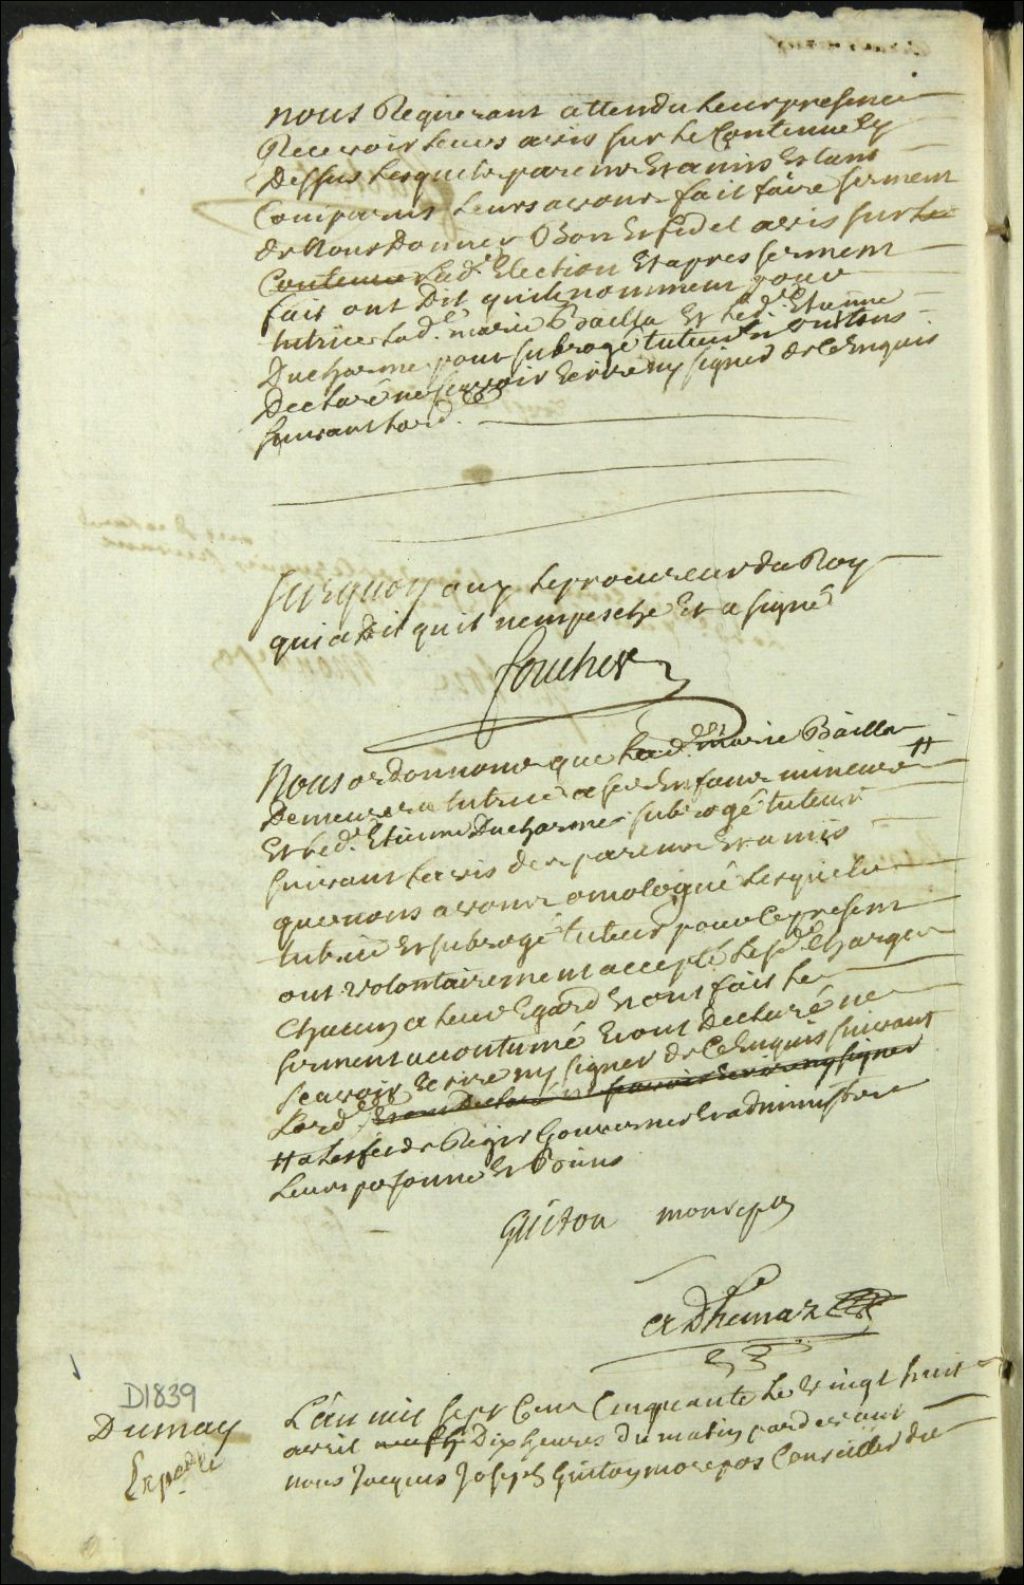 nous Requerant attendu leur presence
Recevoir leurs avis sur le Contenu Cy
Dessus Lesquels parens Et amis Estant
Comparus Leurs avons fait faire serment
de Nous Donner Bon Et fidel avis sur Le
Contenu Lad.e Election Et apres serment
fait ont Dit quils nomment pour
tutrice Lad.e marie Bailla Et Led. Etienne
Ducharme pour subrogé tuteur Et ont tous
Declaré ne sçavoir Ecrire ny signer de Ce Enquis
suivant Lord.
surquoy ouy Le procureur du Roy
qui a Dit quil nempesche Et a signé
foucher
Nous ordonnons que Lad.e marie Bailla
Demeurera tutrice a ses Enfans mineurs #
Et Led. Etienne Ducharme subrogé tuteur
suivant Lavis des parens Et amis
que nous avons omologué Lesquels
tutrice Et subrogé tuteur pour Ce present
ont volontairement accepté Lesd. Charges
Chacun a leur Egard Et ont fait le
serment accoutumé Et ont Declaré ne
sçavoir Ecrire ny signer de Ce Enquis suivant
Lord.e Et ont Declaré ne sçavoir Ecrire ny signer
# a Leffet de Regir Gouverner Et administrer
Leurs personne Et Biens
Guiton monrepos
aDhemar
D1839
Dumay
Expedié
L'an mil sept Cens Cinquante Le vingt huit
avril Dix heures du matin pardevant
nous Jacques Joseph Guiton monrepos Conseiller du